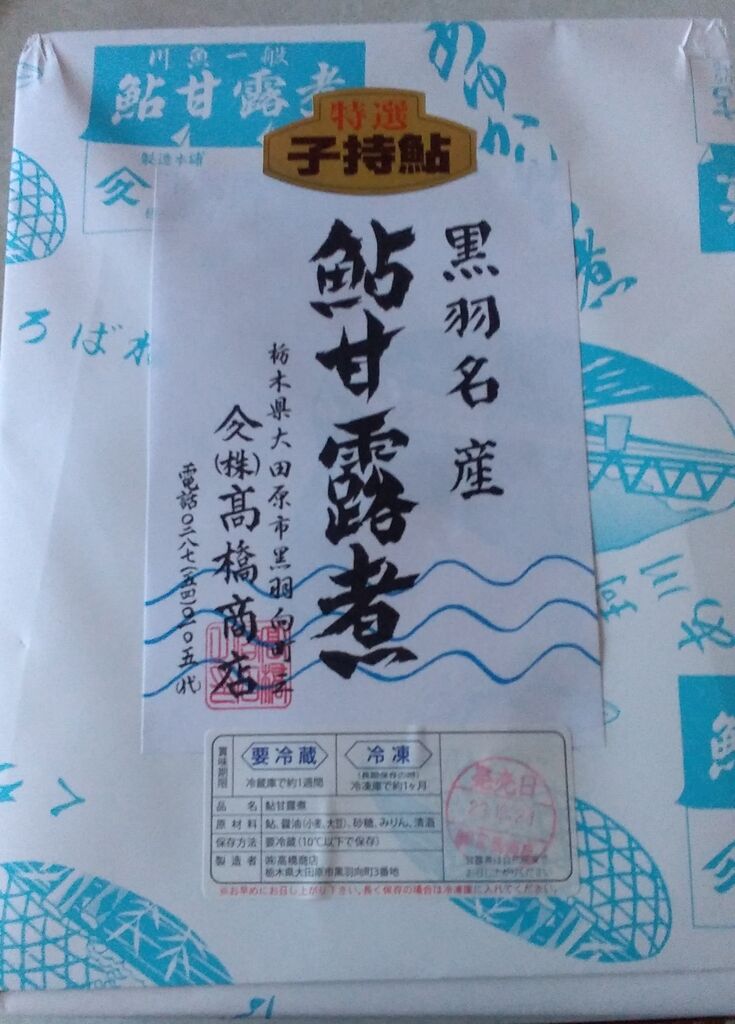 川魚一般
鮎甘露煮
製造本舗
特選
子持鮎
黒羽名産
鮎甘露煮
栃木県大田原市黒羽向町三
仌(株)高橋商店
電話〇二八七(五四)〇一〇五代
ろばね
賞味期限
要冷蔵
冷蔵庫で約1週間
冷凍
(長期保存の時)
冷凍庫で約1ヶ月
品名 鮎甘露煮
原材料 鮎、醤油(小麦、大豆)、砂糖、みりん、清酒
保存方法 要冷蔵(10℃以下で保存)
製造者 ㈱高橋商店
栃木県大田原市黒羽向町3番地
発売日
※お早めにお召し上がり下さい。長く保存の場合は冷凍庫に入れてください。